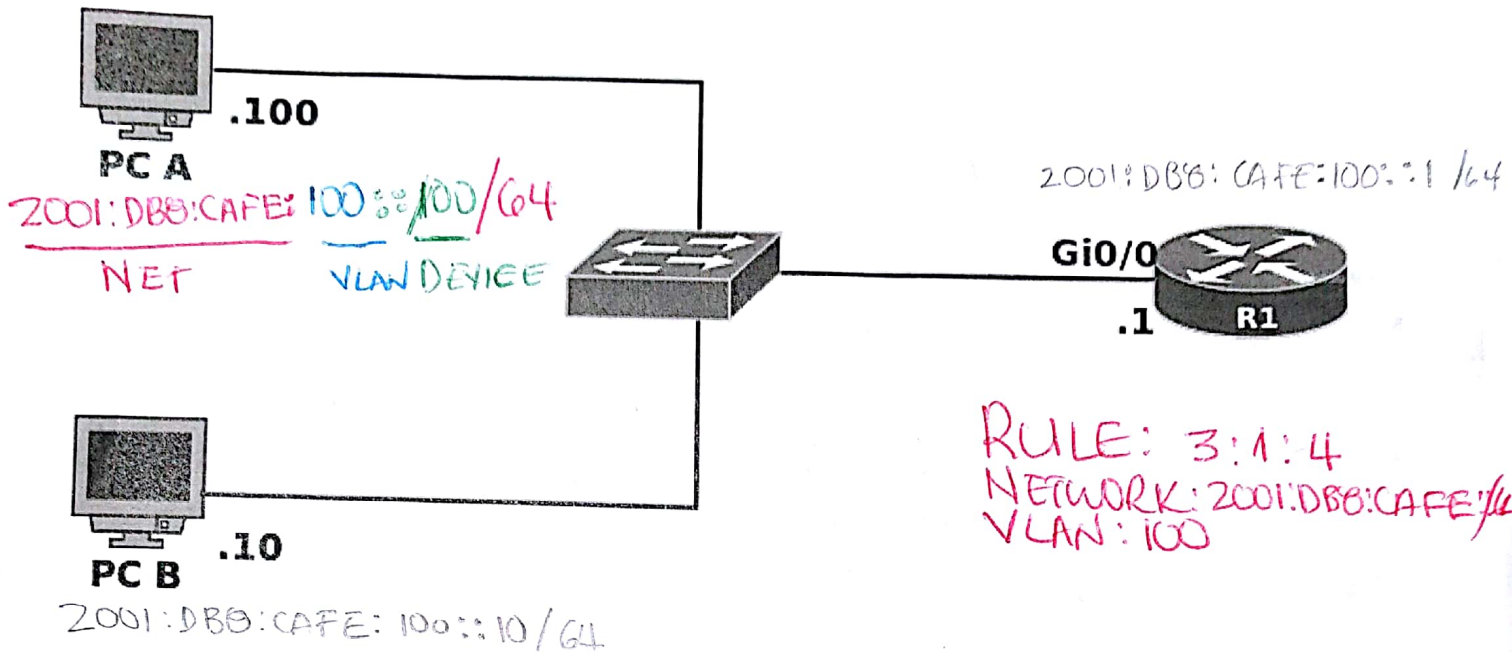 .100
PC A
2001:DB8:CAFE:100::100/64
NET VLAN DEVICE
2001:DB8:CAFE:100::1/64
Gi0/0
.1
R1
.10
PC B
2001:DB8:CAFE:100::10/64
RULE: 3:1:4
NETWORK: 2001:DB8:CAFE:
VLAN: 100